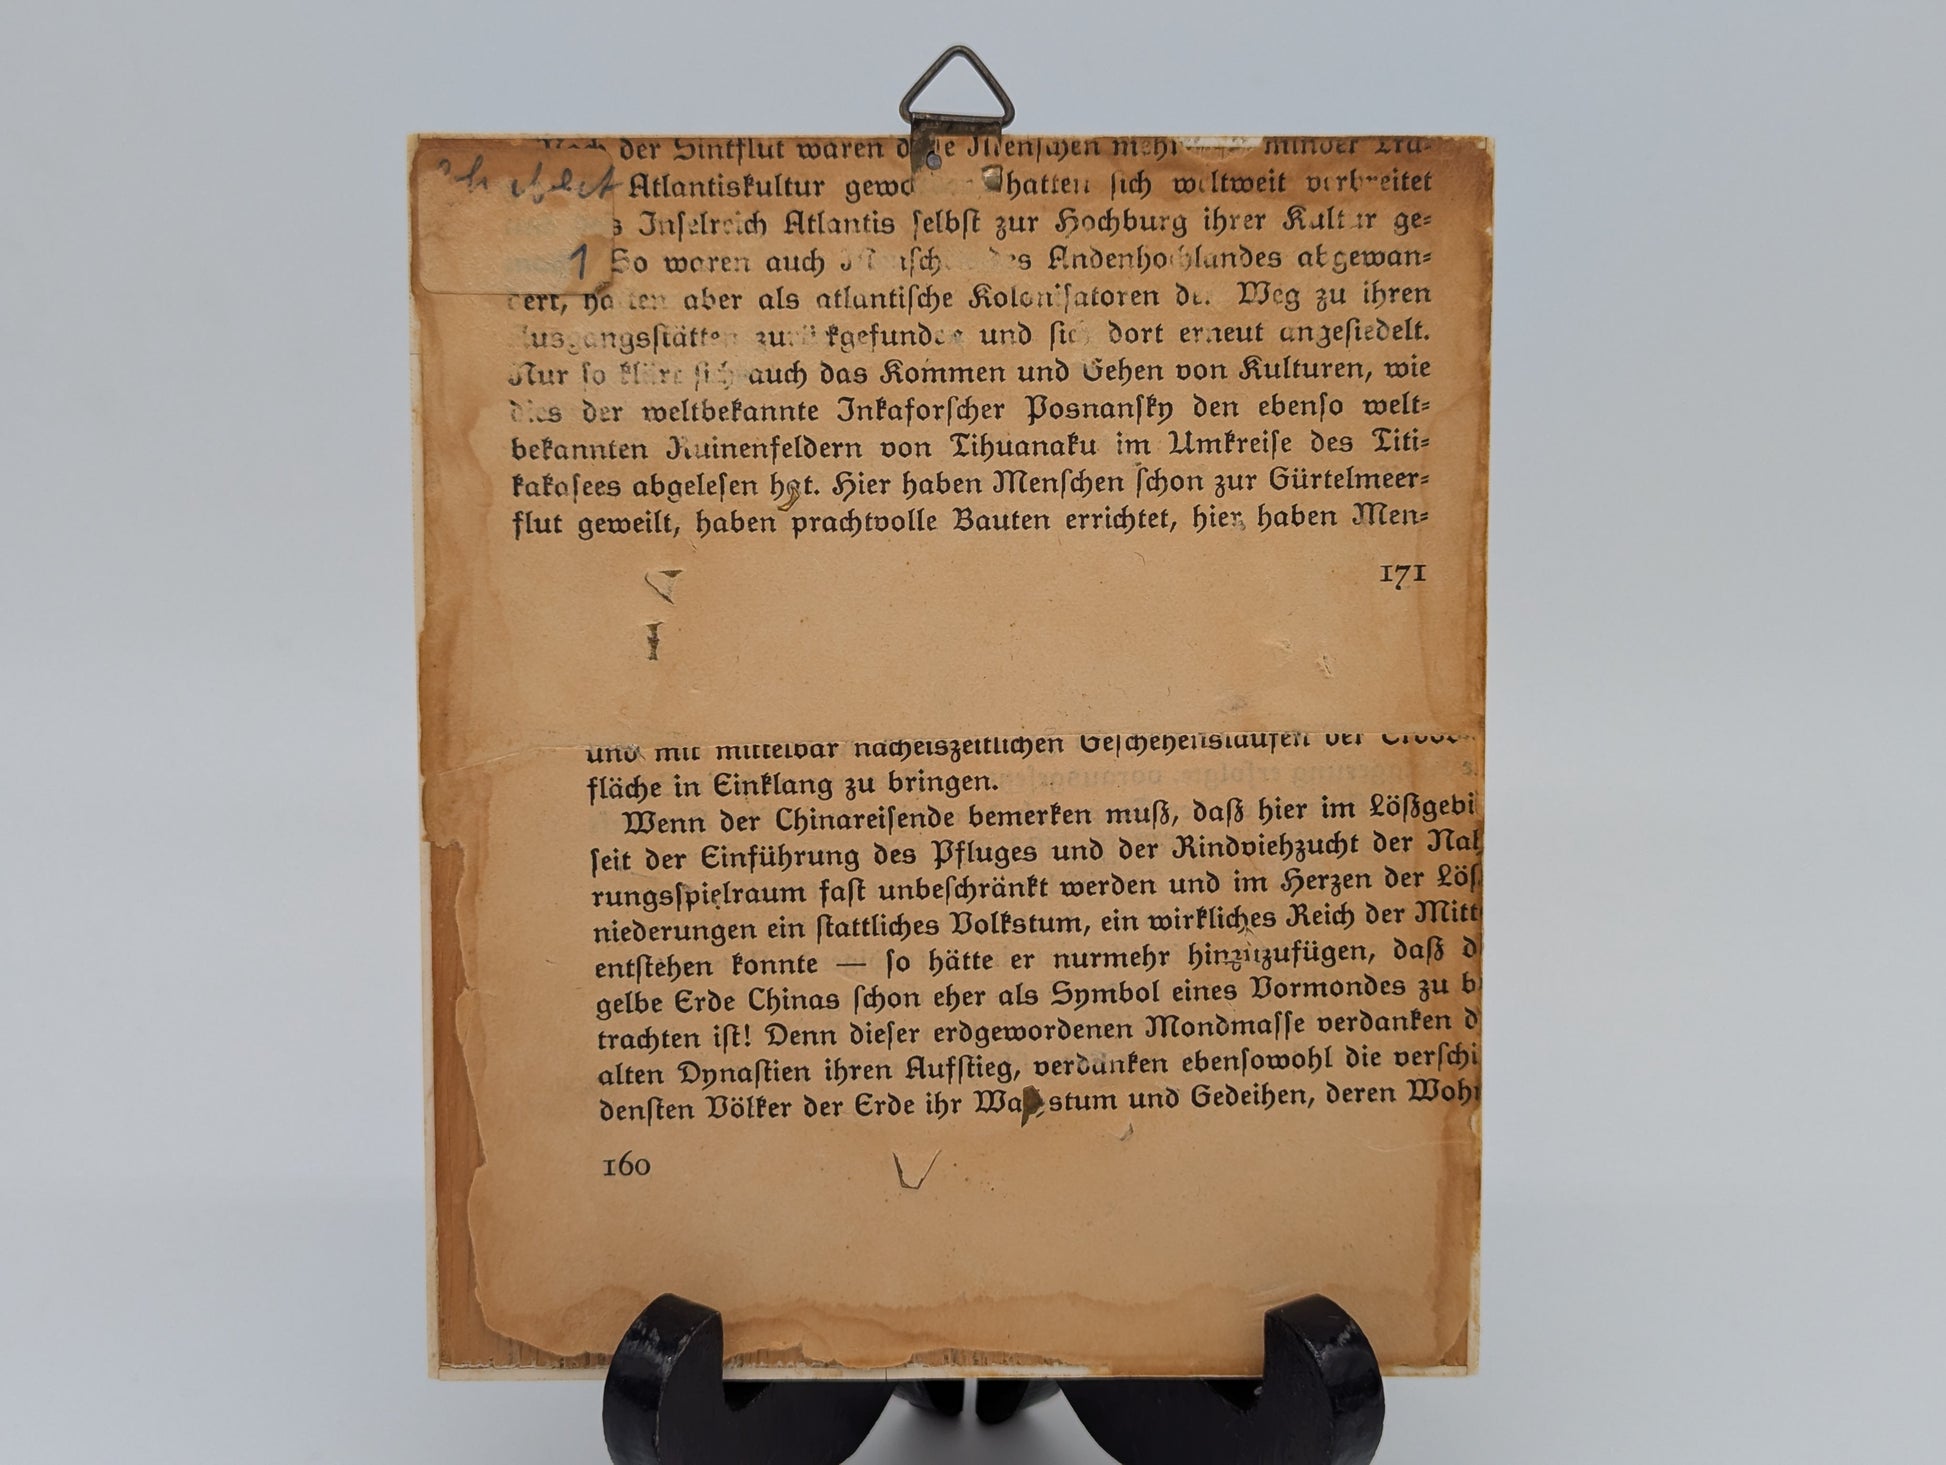 der Sintflut waren diese Menschen mehr minder Trä-
Atlantiskultur hatten sich weltweit verbreitet
Inselreich Atlantis selbst zur Hochburg ihrer Kultur ge-
1 So waren auch des Andenhochlandes abgewan-
dert, hatten aber als atlantische Kolonisatoren den Weg zu ihren
Ausgangsstätten zurückgefunden und sich dort erneut angesiedelt.
Nur so klärt sich auch das Kommen und Gehen von Kulturen, wie
dies der weltbekannte Inkaforscher Posnansky den ebenso welt-
bekannten Ruinenfeldern von Tihuanaku im Umkreise des Titi-
kakasees abgelesen hat. Hier haben Menschen schon zur Gürtelmeer-
flut geweilt, haben prachtvolle Bauten errichtet, hier haben Men-
171
und mit mittelbar nacheiszeitlichen Geschehensläufen der
fläche in Einklang zu bringen.
Wenn der Chinareisende bemerken muß, daß hier im Lößgebi
seit der Einführung des Pfluges und der Rindviehzucht der Nah
rungsspielraum fast unbeschränkt werden und im Herzen der Löß
niederungen ein stattliches Volkstum, ein wirkliches Reich der Mitt
entstehen konnte — so hätte er nurmehr hinzuzufügen, daß d
gelbe Erde Chinas schon eher als Symbol eines Vormondes zu b
trachten ist! Denn dieser erdgewordenen Mondmasse verdanken d
alten Dynastien ihren Aufstieg, verdanken ebensowohl die verschi
densten Völker der Erde ihr Wachstum und Gedeihen, deren Woh
160